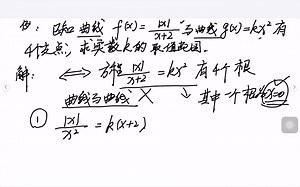 例：已知曲线 f(x)=|x|/(x+2) 与曲线 g(x)=kx² 有
4个交点，求实数k的取值范围。
解： ⟺ 方程 |x|/(x+2) = kx² 有4个根
曲线与曲线 × ↓ 其中一个根为x=0
① |x|/x² = k(x+2)